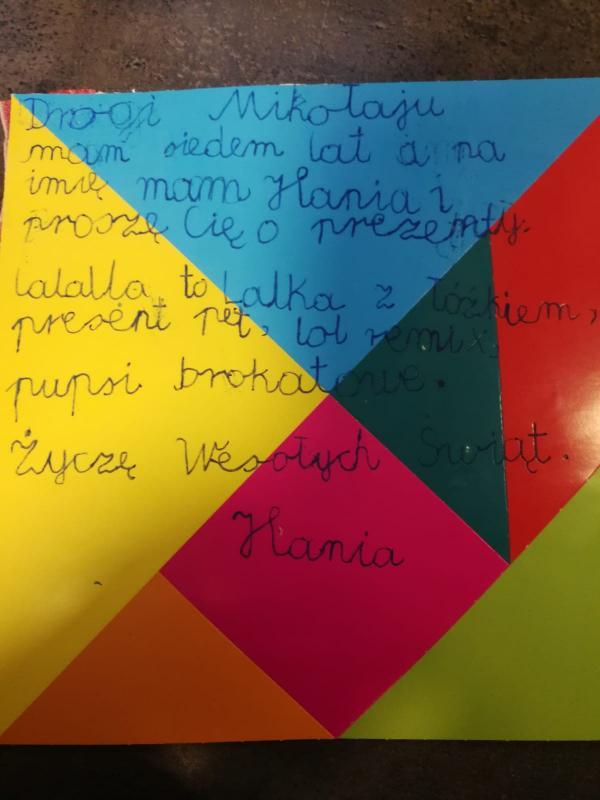 Drogi Mikołaju
mam siedem lat a na
imię mam Hania i
proszę Cię o prezenty.
lalalla to Lalka z łóżkiem,
present pet, lol remix,
pupsi brokatowe.
Życzę Wesołych Świąt.
Hania